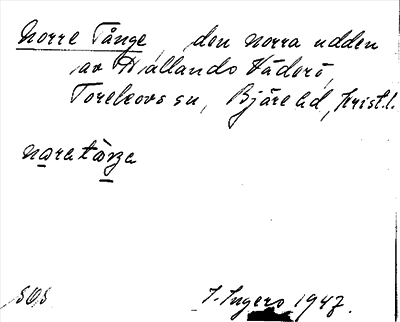 Norre Tånge, den norra udden
av Hallands Väderö,
Torekovs sn, Bjäre hd, Krist. l.
nọratåṇga
SOS J. Ingers 1947.